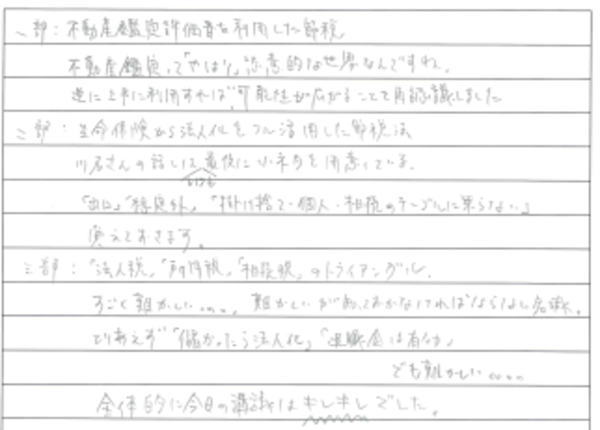 一部：不動産鑑定評価書を利用した節税
不動産鑑定って「やはり」恣意的な世界なんですね。
逆に上手に利用すれば、可能性が広がることを再認識しました
二部：生命保険から法人化をフル活用した節税法
川名さんの話しは最後に小ネタを用意している。
いつも
「出口」「特定外」「掛け捨て・個人・相税のテーブルに乗らない」
覚えておきます。
三部：「法人税」「所得税」「相続税」のトライアングル。
すごく難かしい…。難かしいがわかっておかなければならない名称。
とりあえず「儲かったら法人化」「退職金は有効」
でも難かしい…。
全体的に今日の講話はキレキレでした。